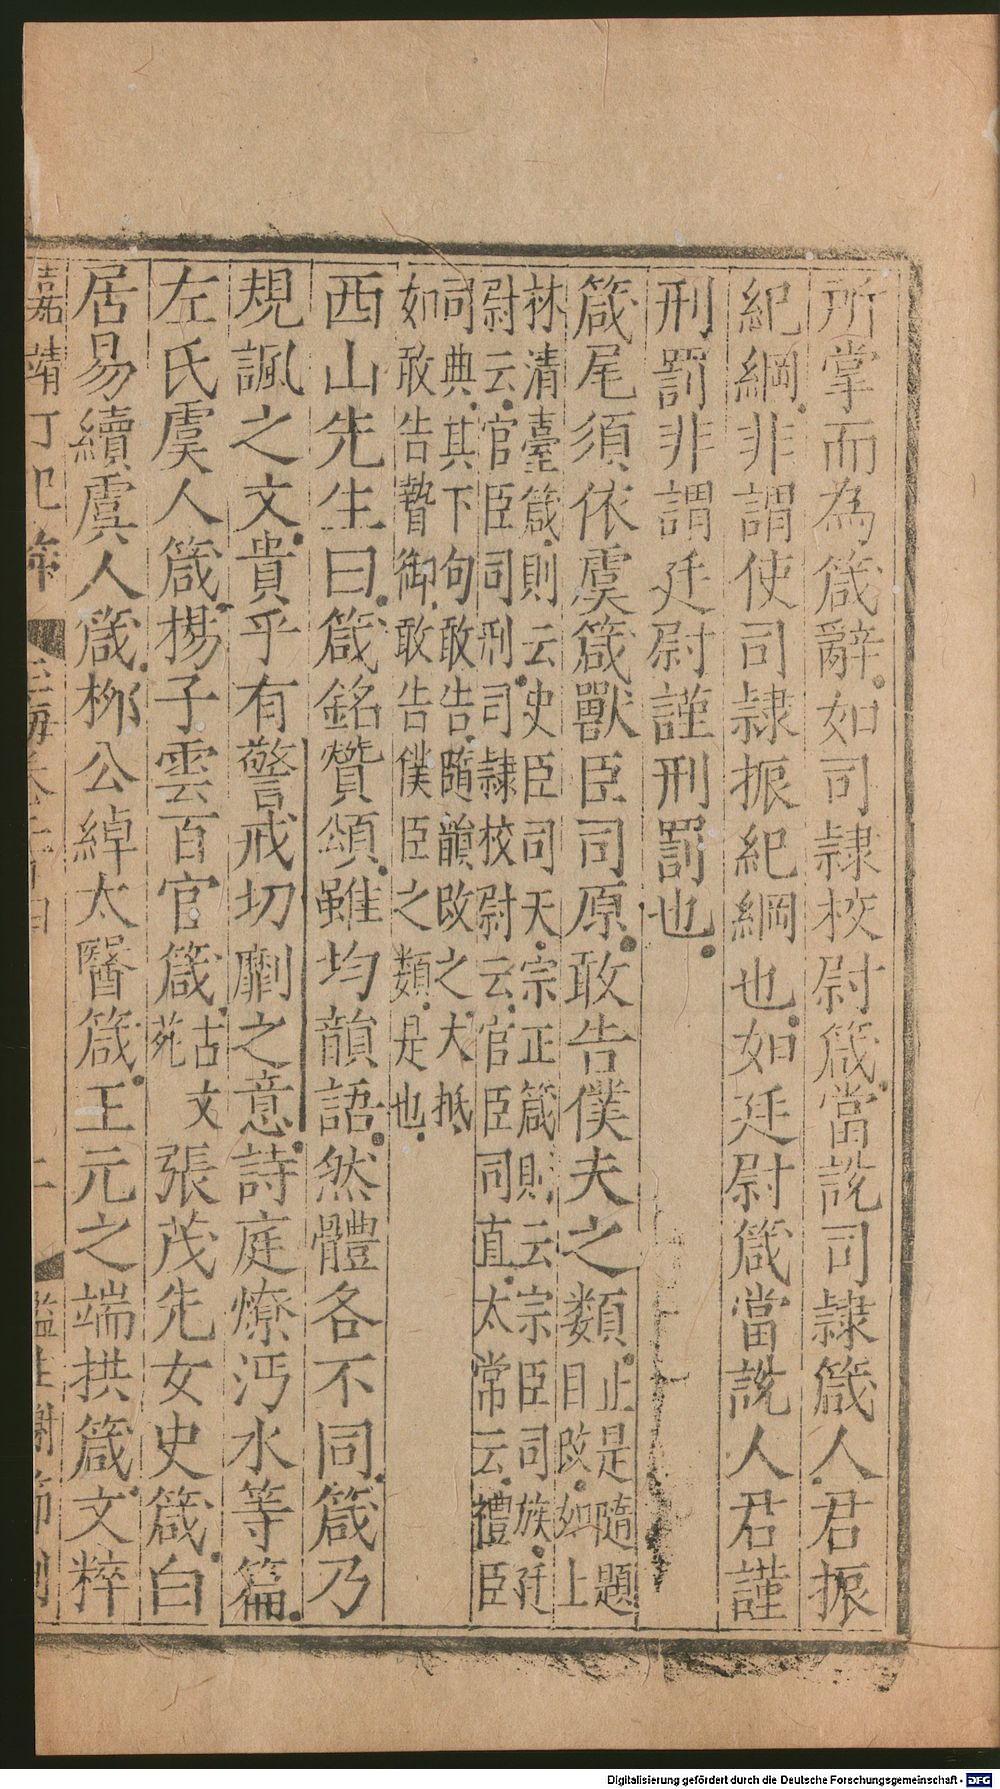 所掌而為箴辭如司隷校尉箴當說司隷箴人君振
紀綱非謂使司隷振紀綱也如廷尉箴當說人君謹
刑罰非謂廷尉謹刑罰也
箴尾須依虞箴獸臣司原敢告僕夫之類止是隨題
目改如上
林清臺箴則云史臣司天宗正箴則云宗臣司族廷
尉云官臣司刑司隷校尉云官臣司直太常云禮臣
司典其下句敢告隨韻改之大抵
如敢告贄御敢告僕臣之類是也
西山先生曰箴銘贊頌雖均韻語然體各不同箴乃
規諷之文貴乎有警戒切劘之意詩庭燎沔水等篇
左氏虞人箴揚子雲百官箴古文
苑張茂先女史箴白
居易續虞人箴柳公綽太醫箴王元之端拱箴文粹
嘉靖丁巳年 二 監生謝 刊
Digitalisierung gefördert durch die Deutsche Forschungsgemeinschaft - DFG